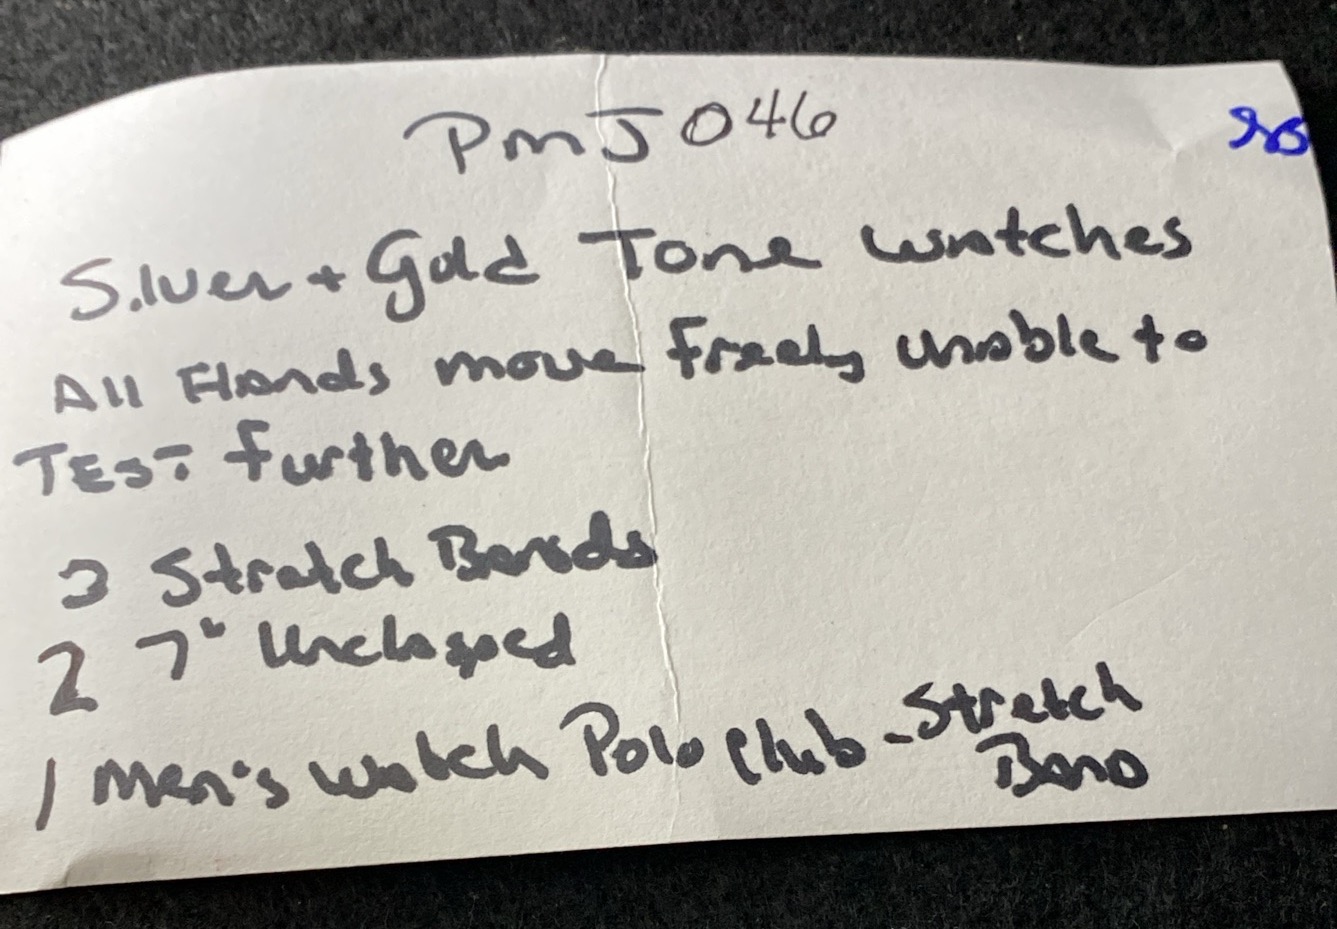 PmJ 046
Silver + Gold Tone watches
All Hands move freely unable to
TEST further
3 Stretch Bands
2 7" Unclasped
1 Men's watch Polo Club - Stretch
Band